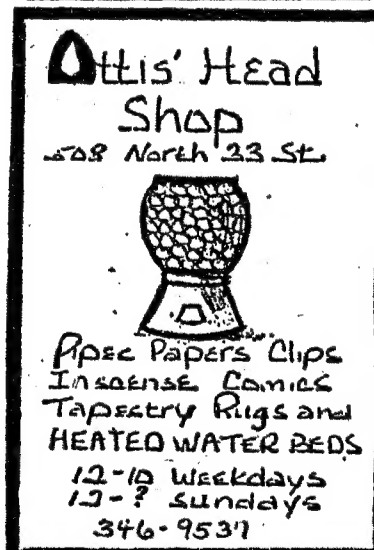 Ottis' Head
Shop
508 North 33 St.
Pipes Papers Clips
Insense Comics
Tapestry Rugs and
HEATED WATER BEDS
12-10 Weekdays
12-? Sundays
346-9537